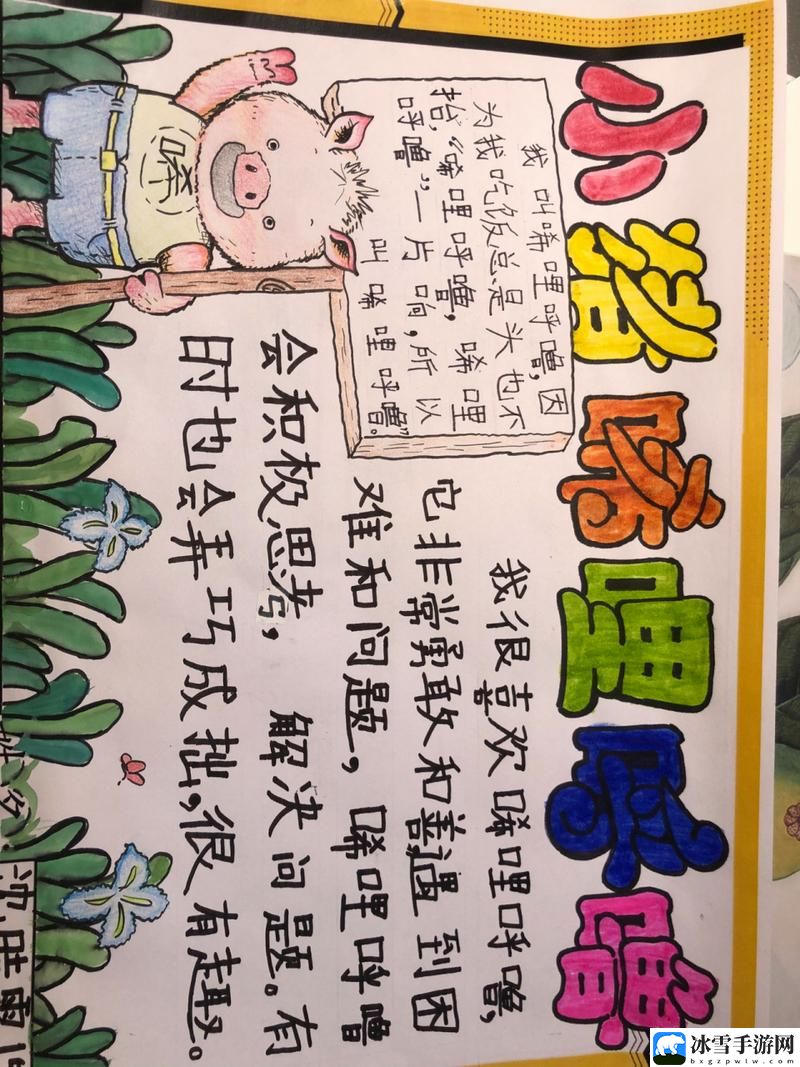 小猪唏哩呼噜
我叫唏哩呼噜,因
为我吃饭总是头也不
抬,“唏哩呼噜,唏哩
呼噜”一片响,所以
叫唏哩呼噜。”
唏
我很喜欢唏哩呼噜,
它非常勇敢和善,遇到困
难和问题,唏哩呼噜
会积极思考,解决问题。有
时也会弄巧成拙,很有趣。
冰雪手游网
bxgzpwlw.com